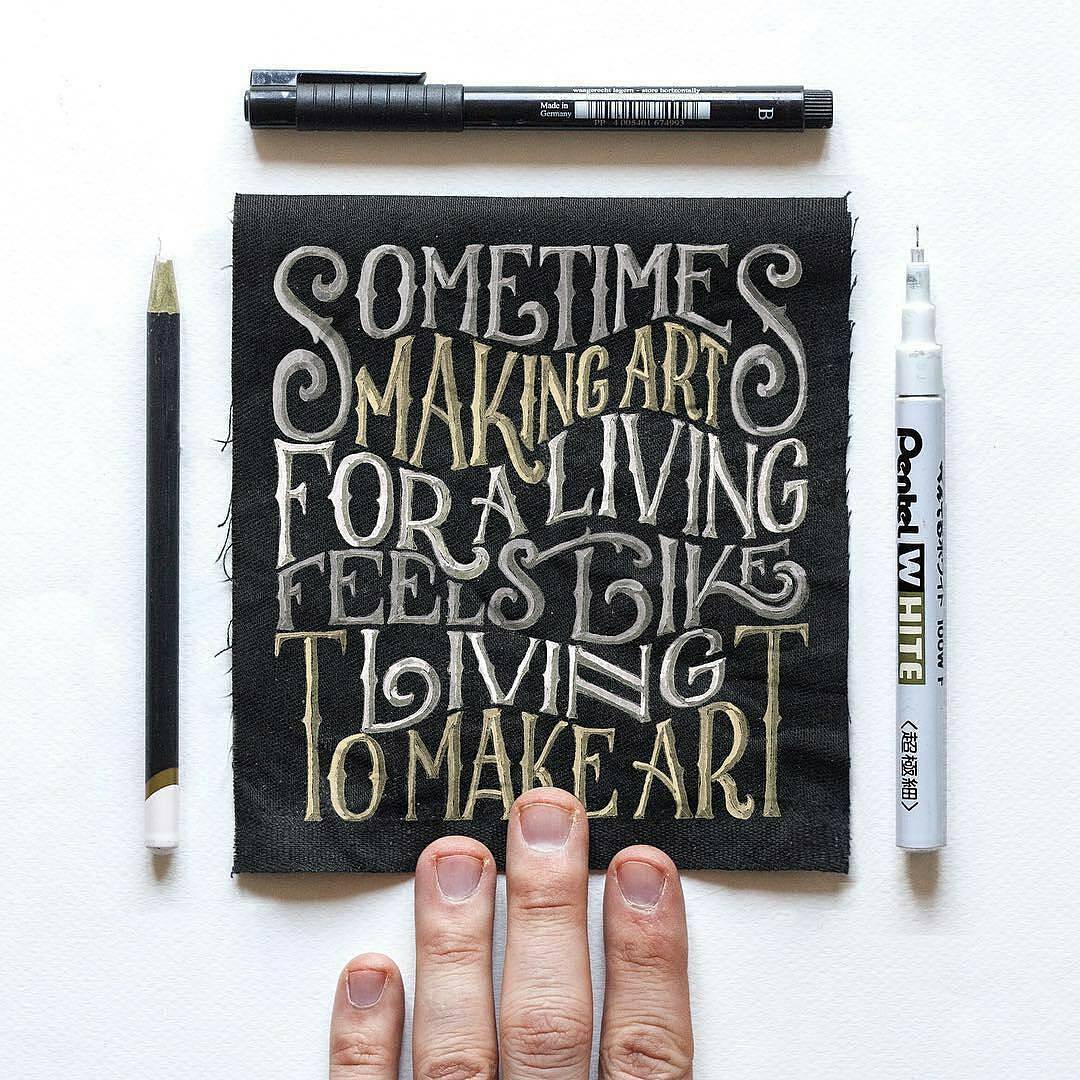 waagerecht lagern - store horizontally
Made in
Germany
PP 4 005401 674993
B
SOMETIMES
MAKING ART
FOR A LIVING
FEELS LIKE
LIVING
TO MAKE ART
Pentel WHITE
100W
〈超極細〉